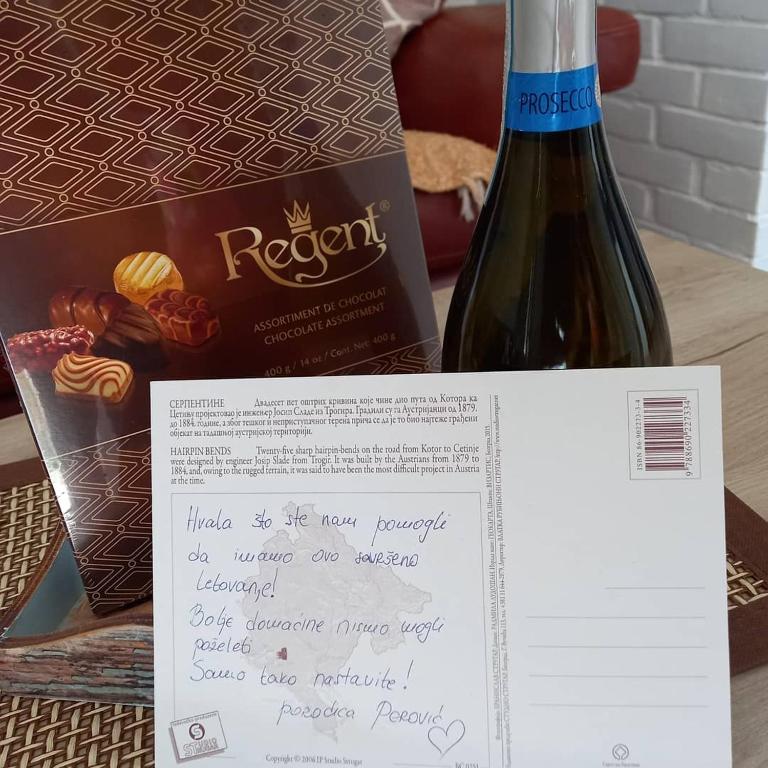 PROSECCO
Regent®
ASSORTIMENT DE CHOCOLAT
CHOCOLATE ASSORTMENT
400 g / 14 oz / Cont. Net: 400 g
СЕРПЕНТИНЕ Двадесет пет оштрих кривина које чине дио пута од Котора ка
Цетињу пројектовао је инжењер Јосип Сладе из Трогира. Градили су га Аустријанци од 1879.
до 1884. године, а због тешког и неприступачног терена прича се да је то био најтеже грађени
објекат на тадашњој аустријској територији.
HAIRPIN BENDS Twenty-five sharp hairpin-bends on the road from Kotor to Cetinje
were designed by engineer Josip Slade from Trogir. It was built by the Austrians from 1879 to
1884, and, owing to the rugged terrain, it was said to have been the most difficult project in Austria
at the time.
Hvala što ste nam pomogli
da imamo ovo savršeno
letovanje!
Bolje domaćine nismo mogli
poželeti
Samo tako nastavite!
porodica Perović
STUDIO
STRUGAR
Copyright © 2006 JP Studio Strugar
ISBN 86-902273-3-4
9 788690 227334